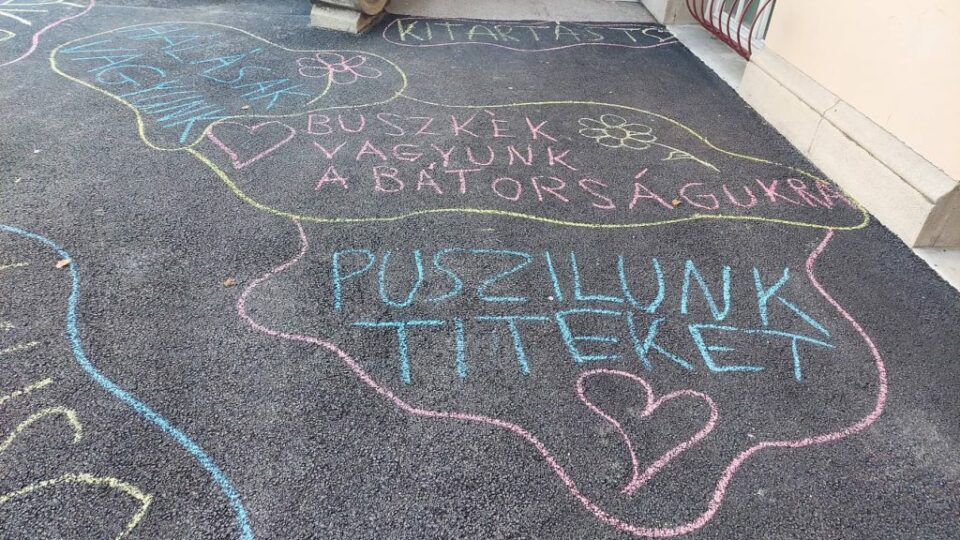 KITARTÁST
HÁLÁSAK
VAGYUNK
BUSZKÈK
VAGYUNK
A BÁTORSÁGUKRA
PUSZILUNK
TITEKET